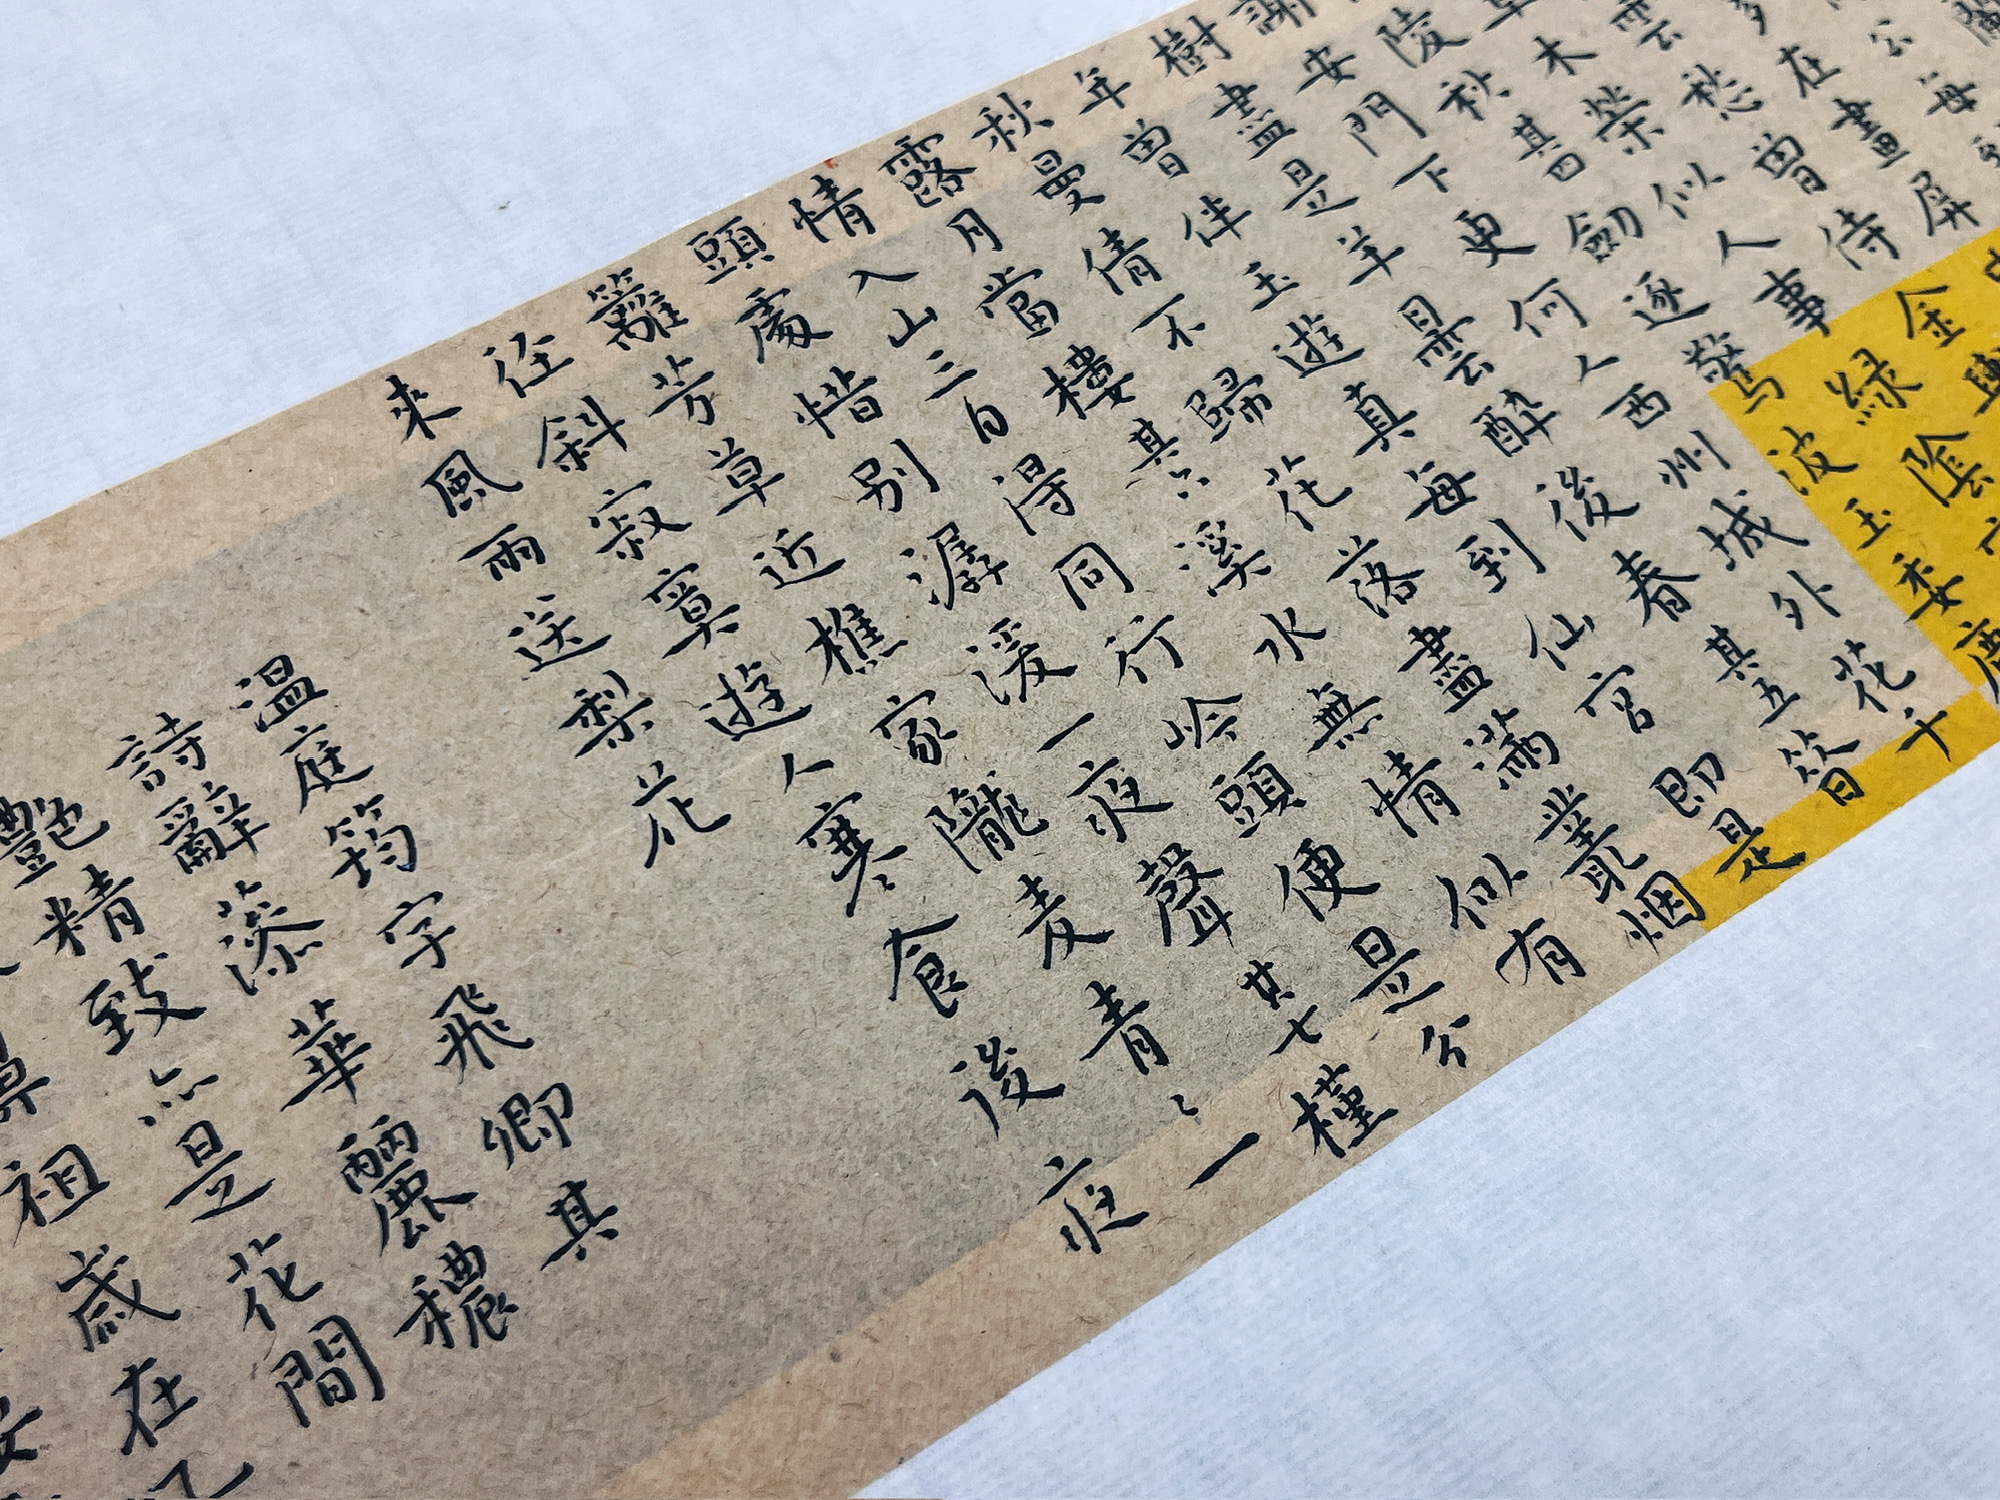 公每到
多在畫屏中
雲愁曾侍金輿
草木榮似人事綠陰
陵秋其四劍逐驚波玉委塵
謝安門下更何人西州城外花千
樹盡是羊曇醉後春其五昔
年曾伴玉遊真每到仙宮即是
秋曼倩不歸花落盡滿叢烟
露月當樓其六溪水無情似有
情入山三日得同行嶺頭便是分
頭處惜別潺湲一夜聲其七槿
籬芳草近樵家隴麥青〻一
徑斜寂寞遊人寒食後夜
來風雨送梨花
溫庭筠字飛卿其
詩辭藻華麗穠
艷精致亦是花間
鼻祖歲在乙